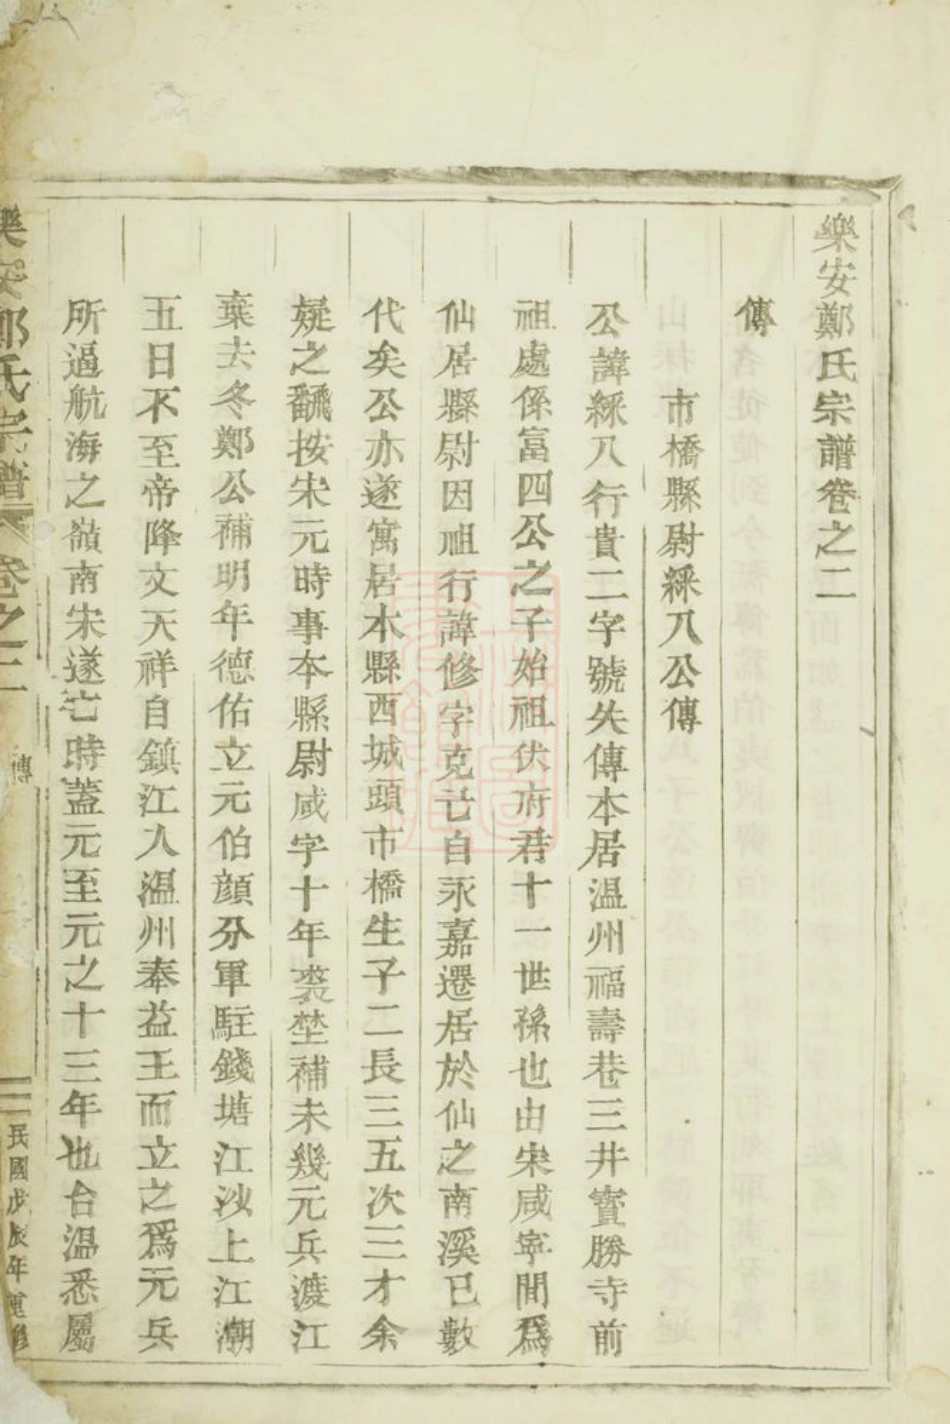 樂安鄭氏宗譜卷之二
傳
市橋縣尉綵八公傳
公諱綵八行貴二字號失傳本居温州福壽巷三井寳勝寺前
祖處係富四公之子始祖伏府君十一世孫也由宋咸寧間爲
仙居縣尉因祖行諱修字克己自永嘉遷居於仙之南溪已數
代矣公亦遂寓居本縣西城頭市橋生子二長三五次三才余
疑之飜按宋元時事本縣尉咸字十年裘埜補未幾元兵渡江
葉去冬鄭公補明年德佑立元伯顔分軍駐錢塘江沙上江潮
五日不至帝降文天祥自鎮江入温州奉益王而立之爲元兵
所逼航海之嶺南宋遂亡時蓋元至元之十三年也台温悉屬
樂安鄭氏宗譜 卷之二 傳 民國戊辰年重修